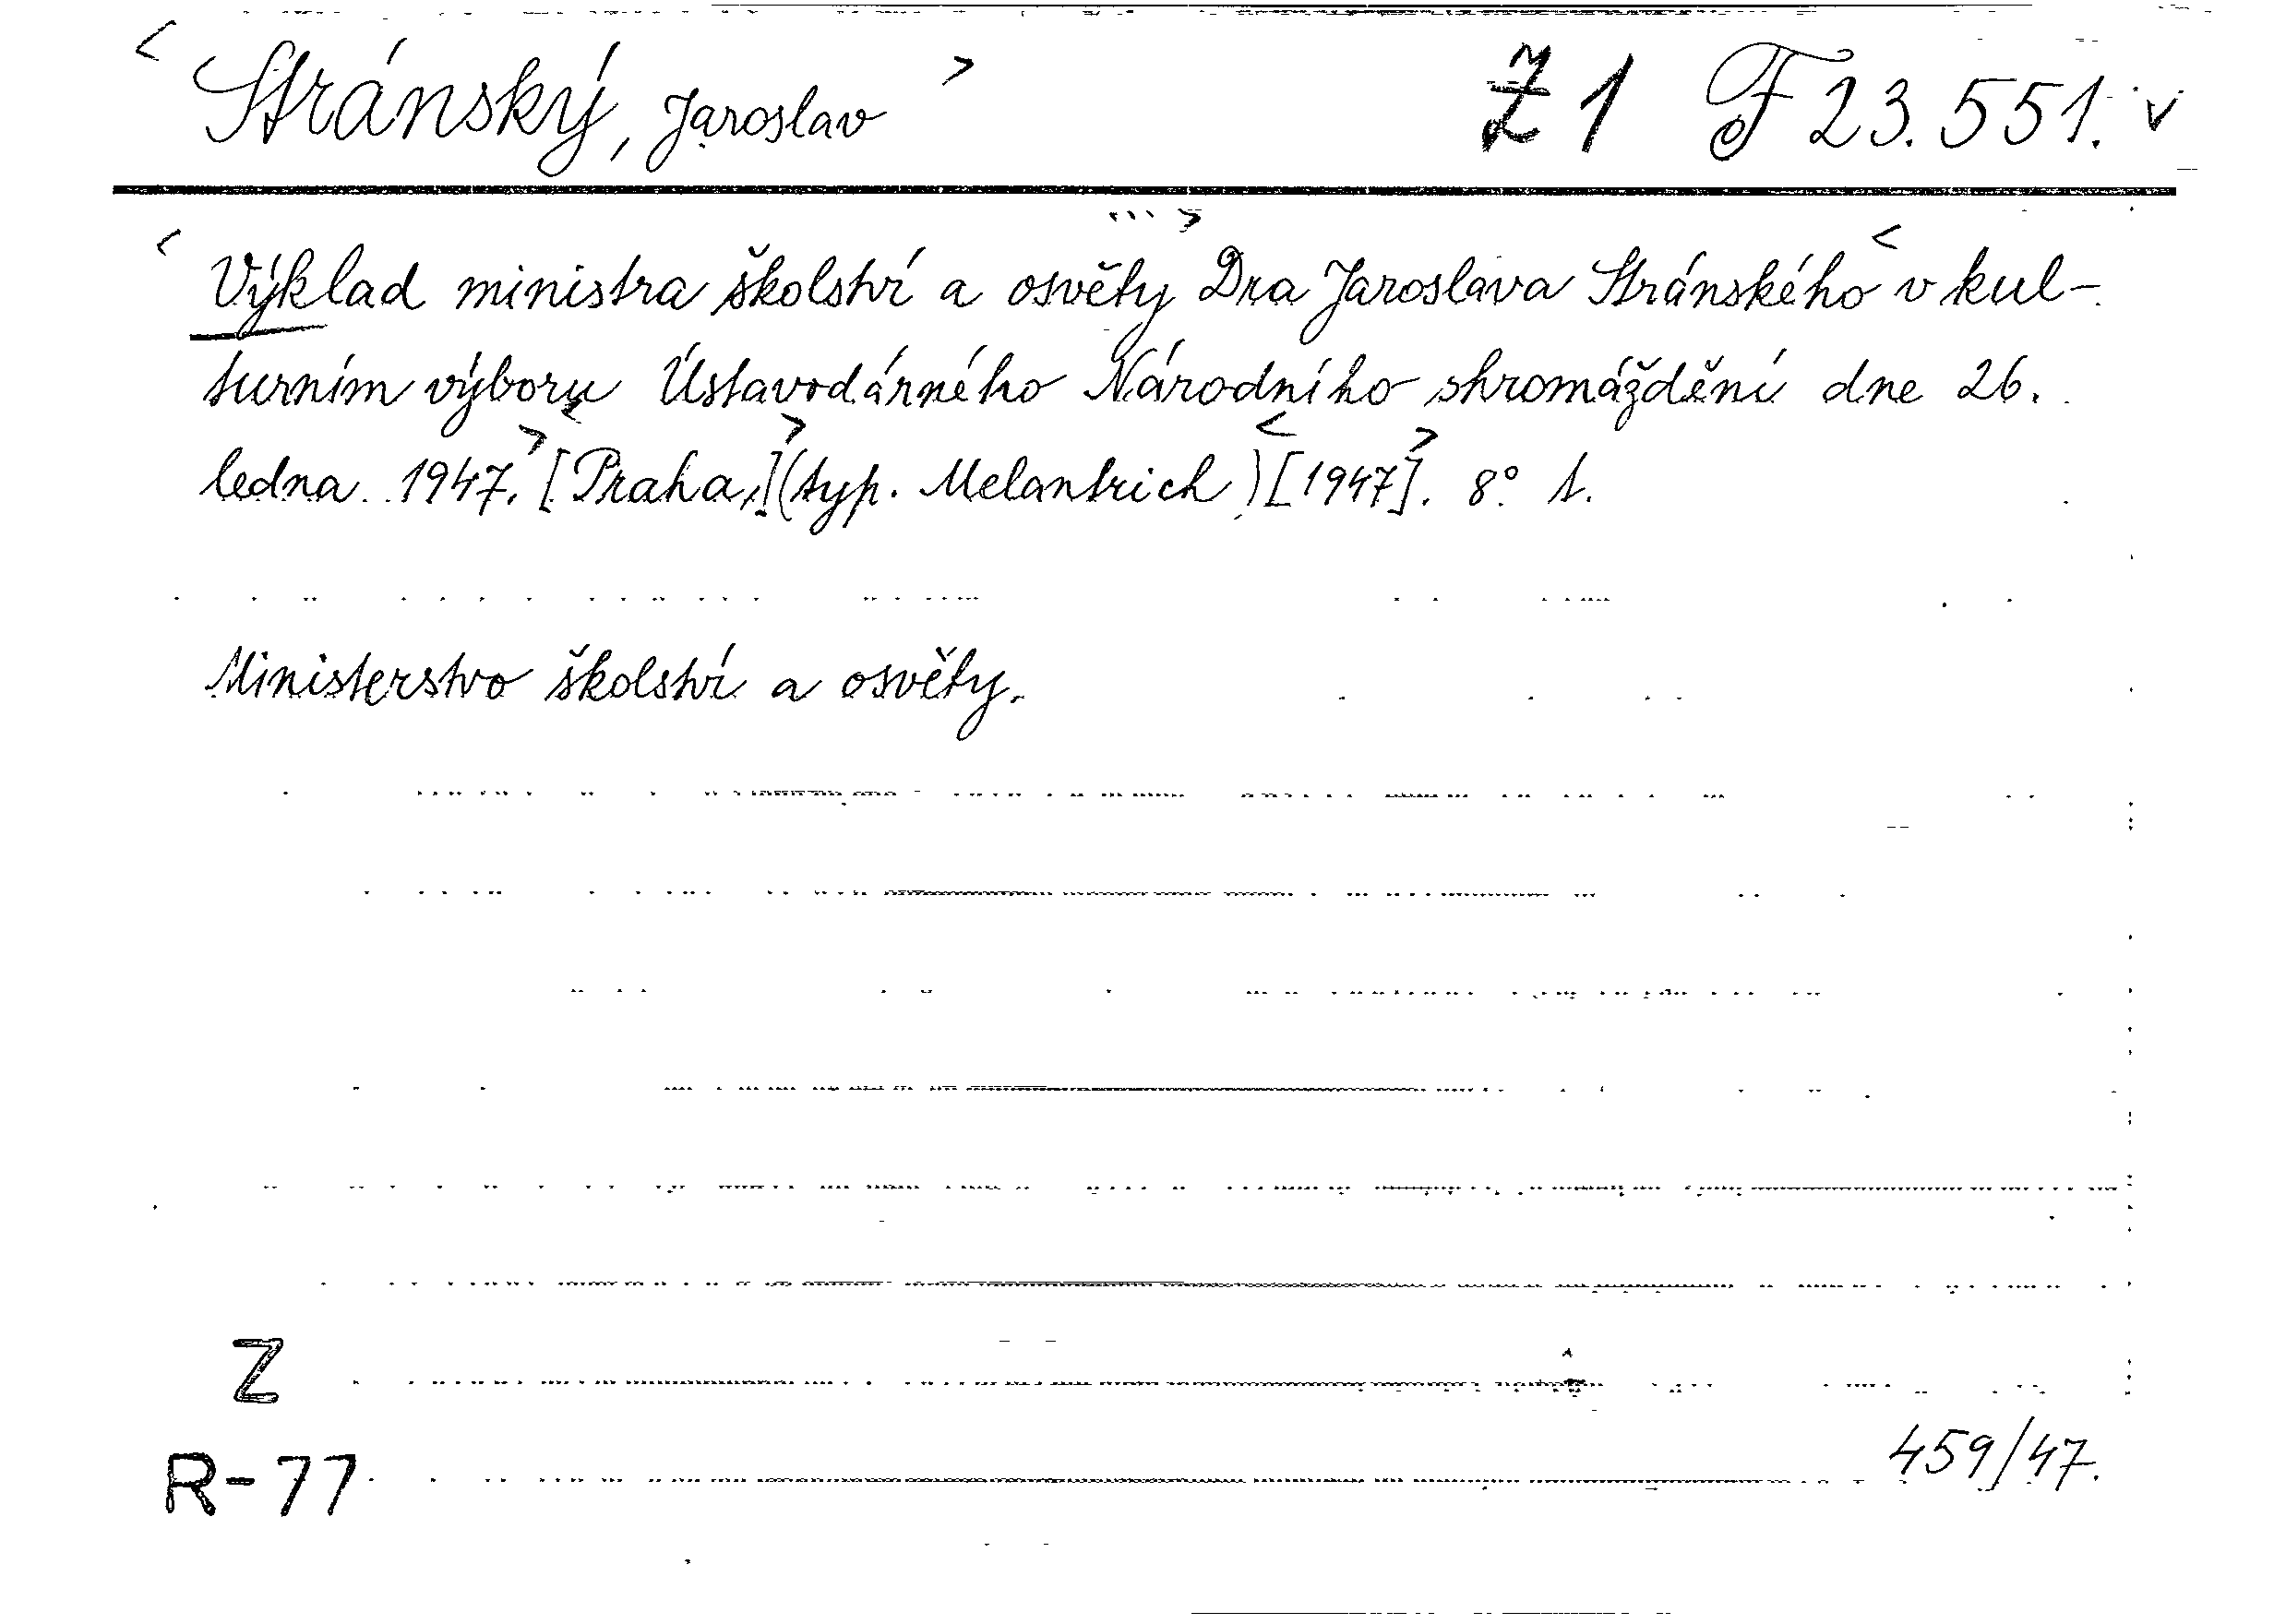 < Stránský, Jaroslav > Ž 1 F 23.551. v
< Výklad ministra školství a osvěty ...> Dra Jaroslava Stránského < v kul-
turním výboru Ústavodárného Národního shromáždění dne 26.
ledna 1947.> [< Praha,]> (typ. Melantrich) <[1947]>. 8° 1.
Ministerstvo školství a osvěty.
Z
R-77
459/47.